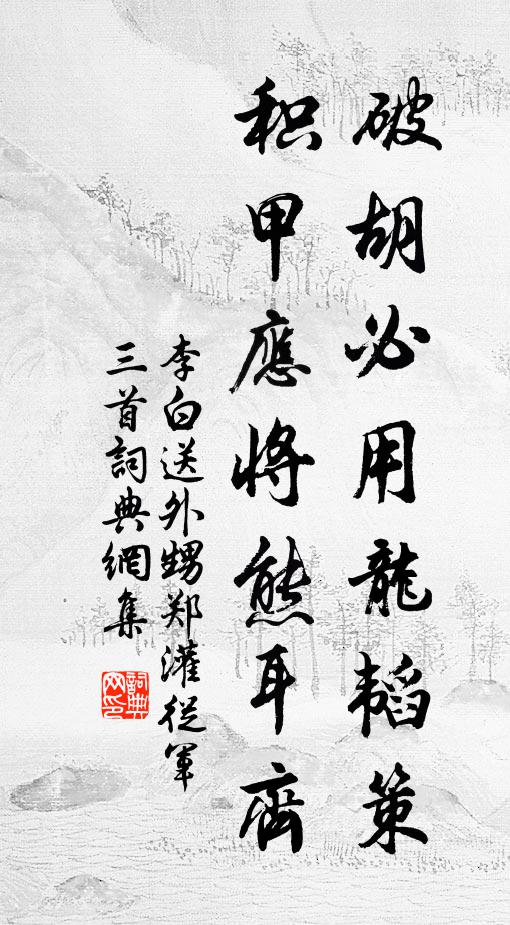 破胡必用龍韜策
积甲應將熊耳齊
李白送外甥郑灌從軍
三首詞典網集
詞典
网印